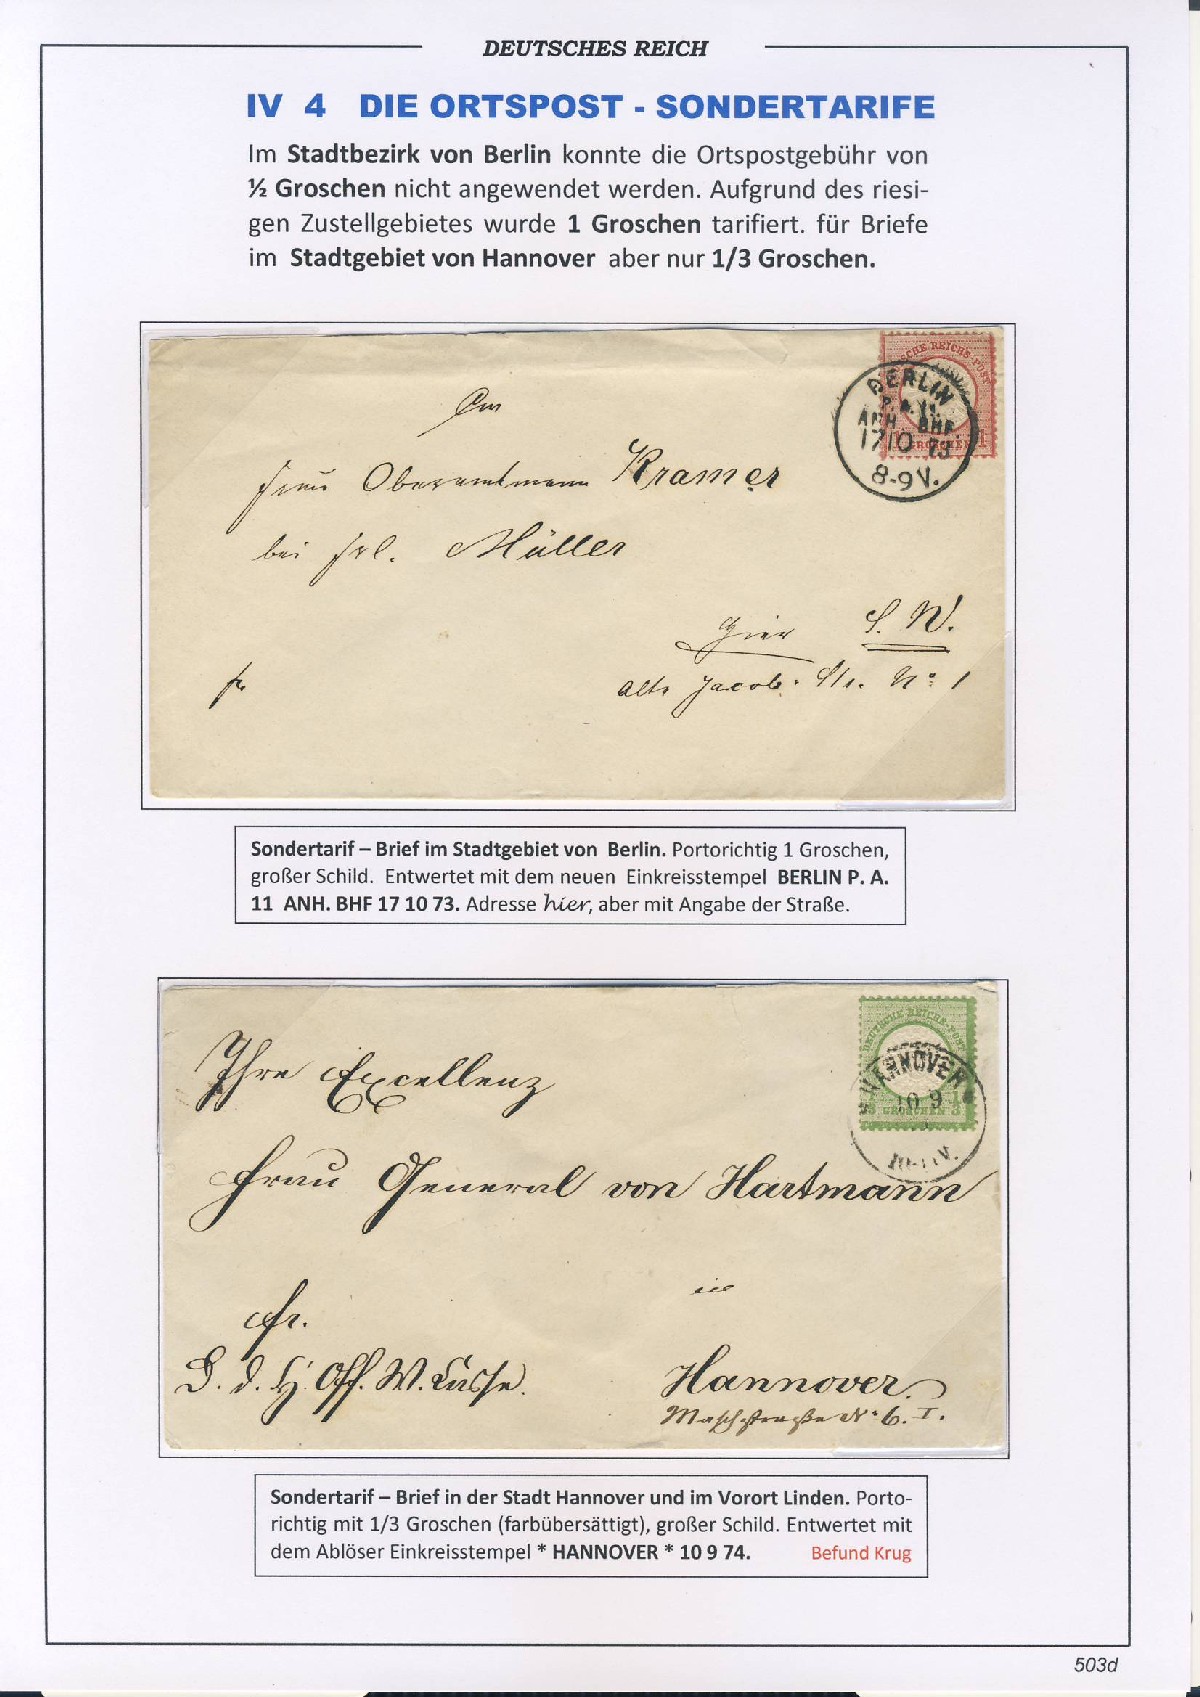 DEUTSCHES REICH
IV 4 DIE ORTSPOST - SONDERTARIFE
Im Stadtbezirk von Berlin konnte die Ortspostgebühr von
½ Groschen nicht angewendet werden. Aufgrund des riesi-
gen Zustellgebietes wurde 1 Groschen tarifiert. für Briefe
im Stadtgebiet von Hannover aber nur 1/3 Groschen.
BERLIN
P. A. 11.
ANH. BHF
17 10 73
8-9 V.
GROSCHEN 1
Frau Oberamtmann Kramer
bei Frl. Müller
hier S. W.
alte Jacob. Str. No 1
fr
Sondertarif – Brief im Stadtgebiet von Berlin. Portorichtig 1 Groschen,
großer Schild. Entwertet mit dem neuen Einkreisstempel BERLIN P. A.
11 ANH. BHF 17 10 73. Adresse hier, aber mit Angabe der Straße.
DEUTSCHE REICHS-POST
HANNOVER
10 9
1/3 GROSCHEN 1/3
Ihre Excellenz
Frau General von Hartmann
in
fr.
Hannover.
Sondertarif – Brief in der Stadt Hannover und im Vorort Linden. Porto-
richtig mit 1/3 Groschen (farbübersättigt), großer Schild. Entwertet mit
dem Ablöser Einkreisstempel * HANNOVER * 10 9 74. Befund Krug
503d